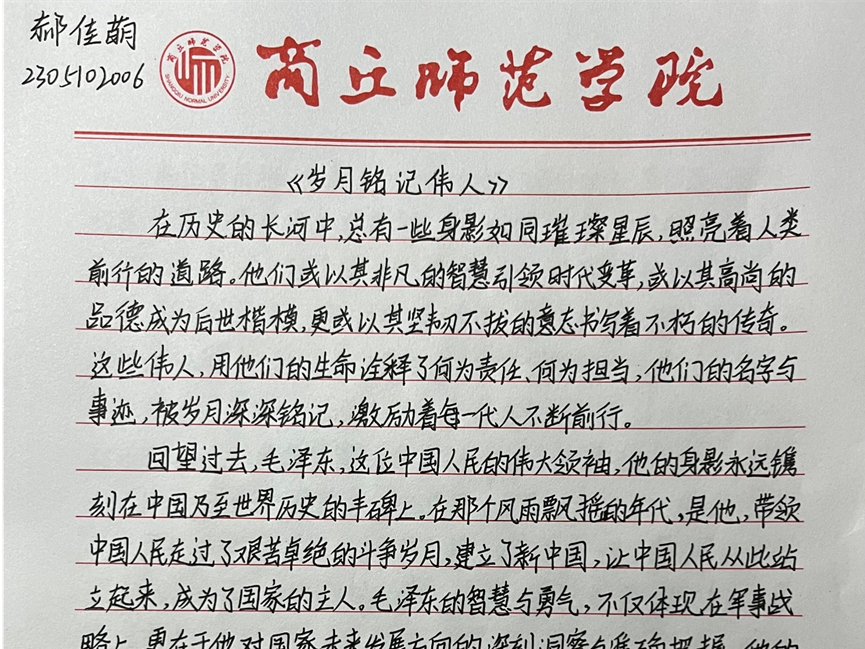 郝佳萌
2305102006
商丘师范学院
SHANGQIU NORMAL UNIVERSITY
商丘师范学院
《岁月铭记伟人》
在历史的长河中,总有一些身影如同璀璨星辰,照亮着人类
前行的道路。他们或以其非凡的智慧引领时代变革,或以其高尚的
品德成为后世楷模,更或以其坚韧不拔的意志书写着不朽的传奇。
这些伟人,用他们的生命诠释了何为责任、何为担当,他们的名字与
事迹,被岁月深深铭记,激励着每一代人不断前行。
回望过去,毛泽东,这位中国人民的伟大领袖,他的身影永远镌
刻在中国乃至世界历史的丰碑上。在那个风雨飘摇的年代,是他,带领
中国人民走过了艰苦卓绝的斗争岁月,建立了新中国,让中国人民从此站
立起来,成为了国家的主人。毛泽东的智慧与勇气,不仅体现在军事战
略上,更在于他对国家未来发展方向的深刻洞察与准确把握。他的